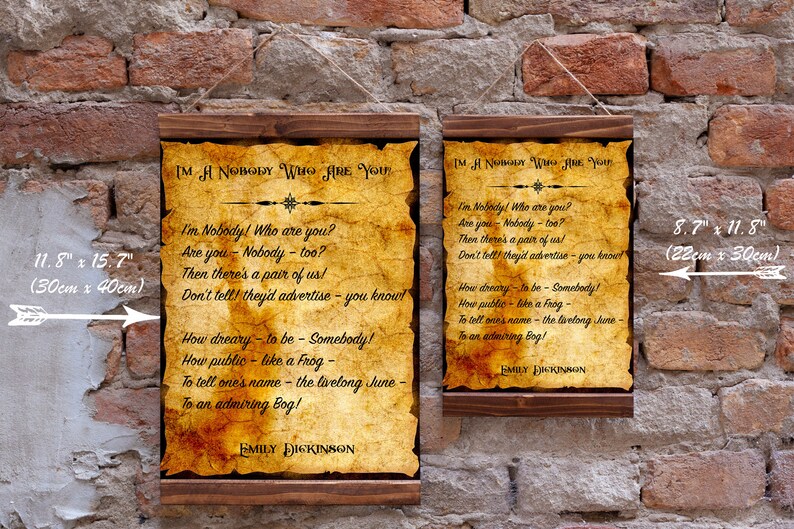 I'm A Nobody Who Are You?
I'm Nobody! Who are you?
Are you – Nobody – too?
Then there's a pair of us!
Don't tell! they'd advertise – you know!
How dreary – to be – Somebody!
How public – like a Frog –
To tell one's name – the livelong June –
To an admiring Bog!
Emily Dickinson
11.8" x 15.7"
(30cm x 40cm)
I'm A Nobody Who Are You?
I'm Nobody! Who are you?
Are you – Nobody – too?
Then there's a pair of us!
Don't tell! they'd advertise – you know!
How dreary – to be – Somebody!
How public – like a Frog –
To tell one's name – the livelong June –
To an admiring Bog!
Emily Dickinson
8.7" x 11.8"
(22cm x 30cm)